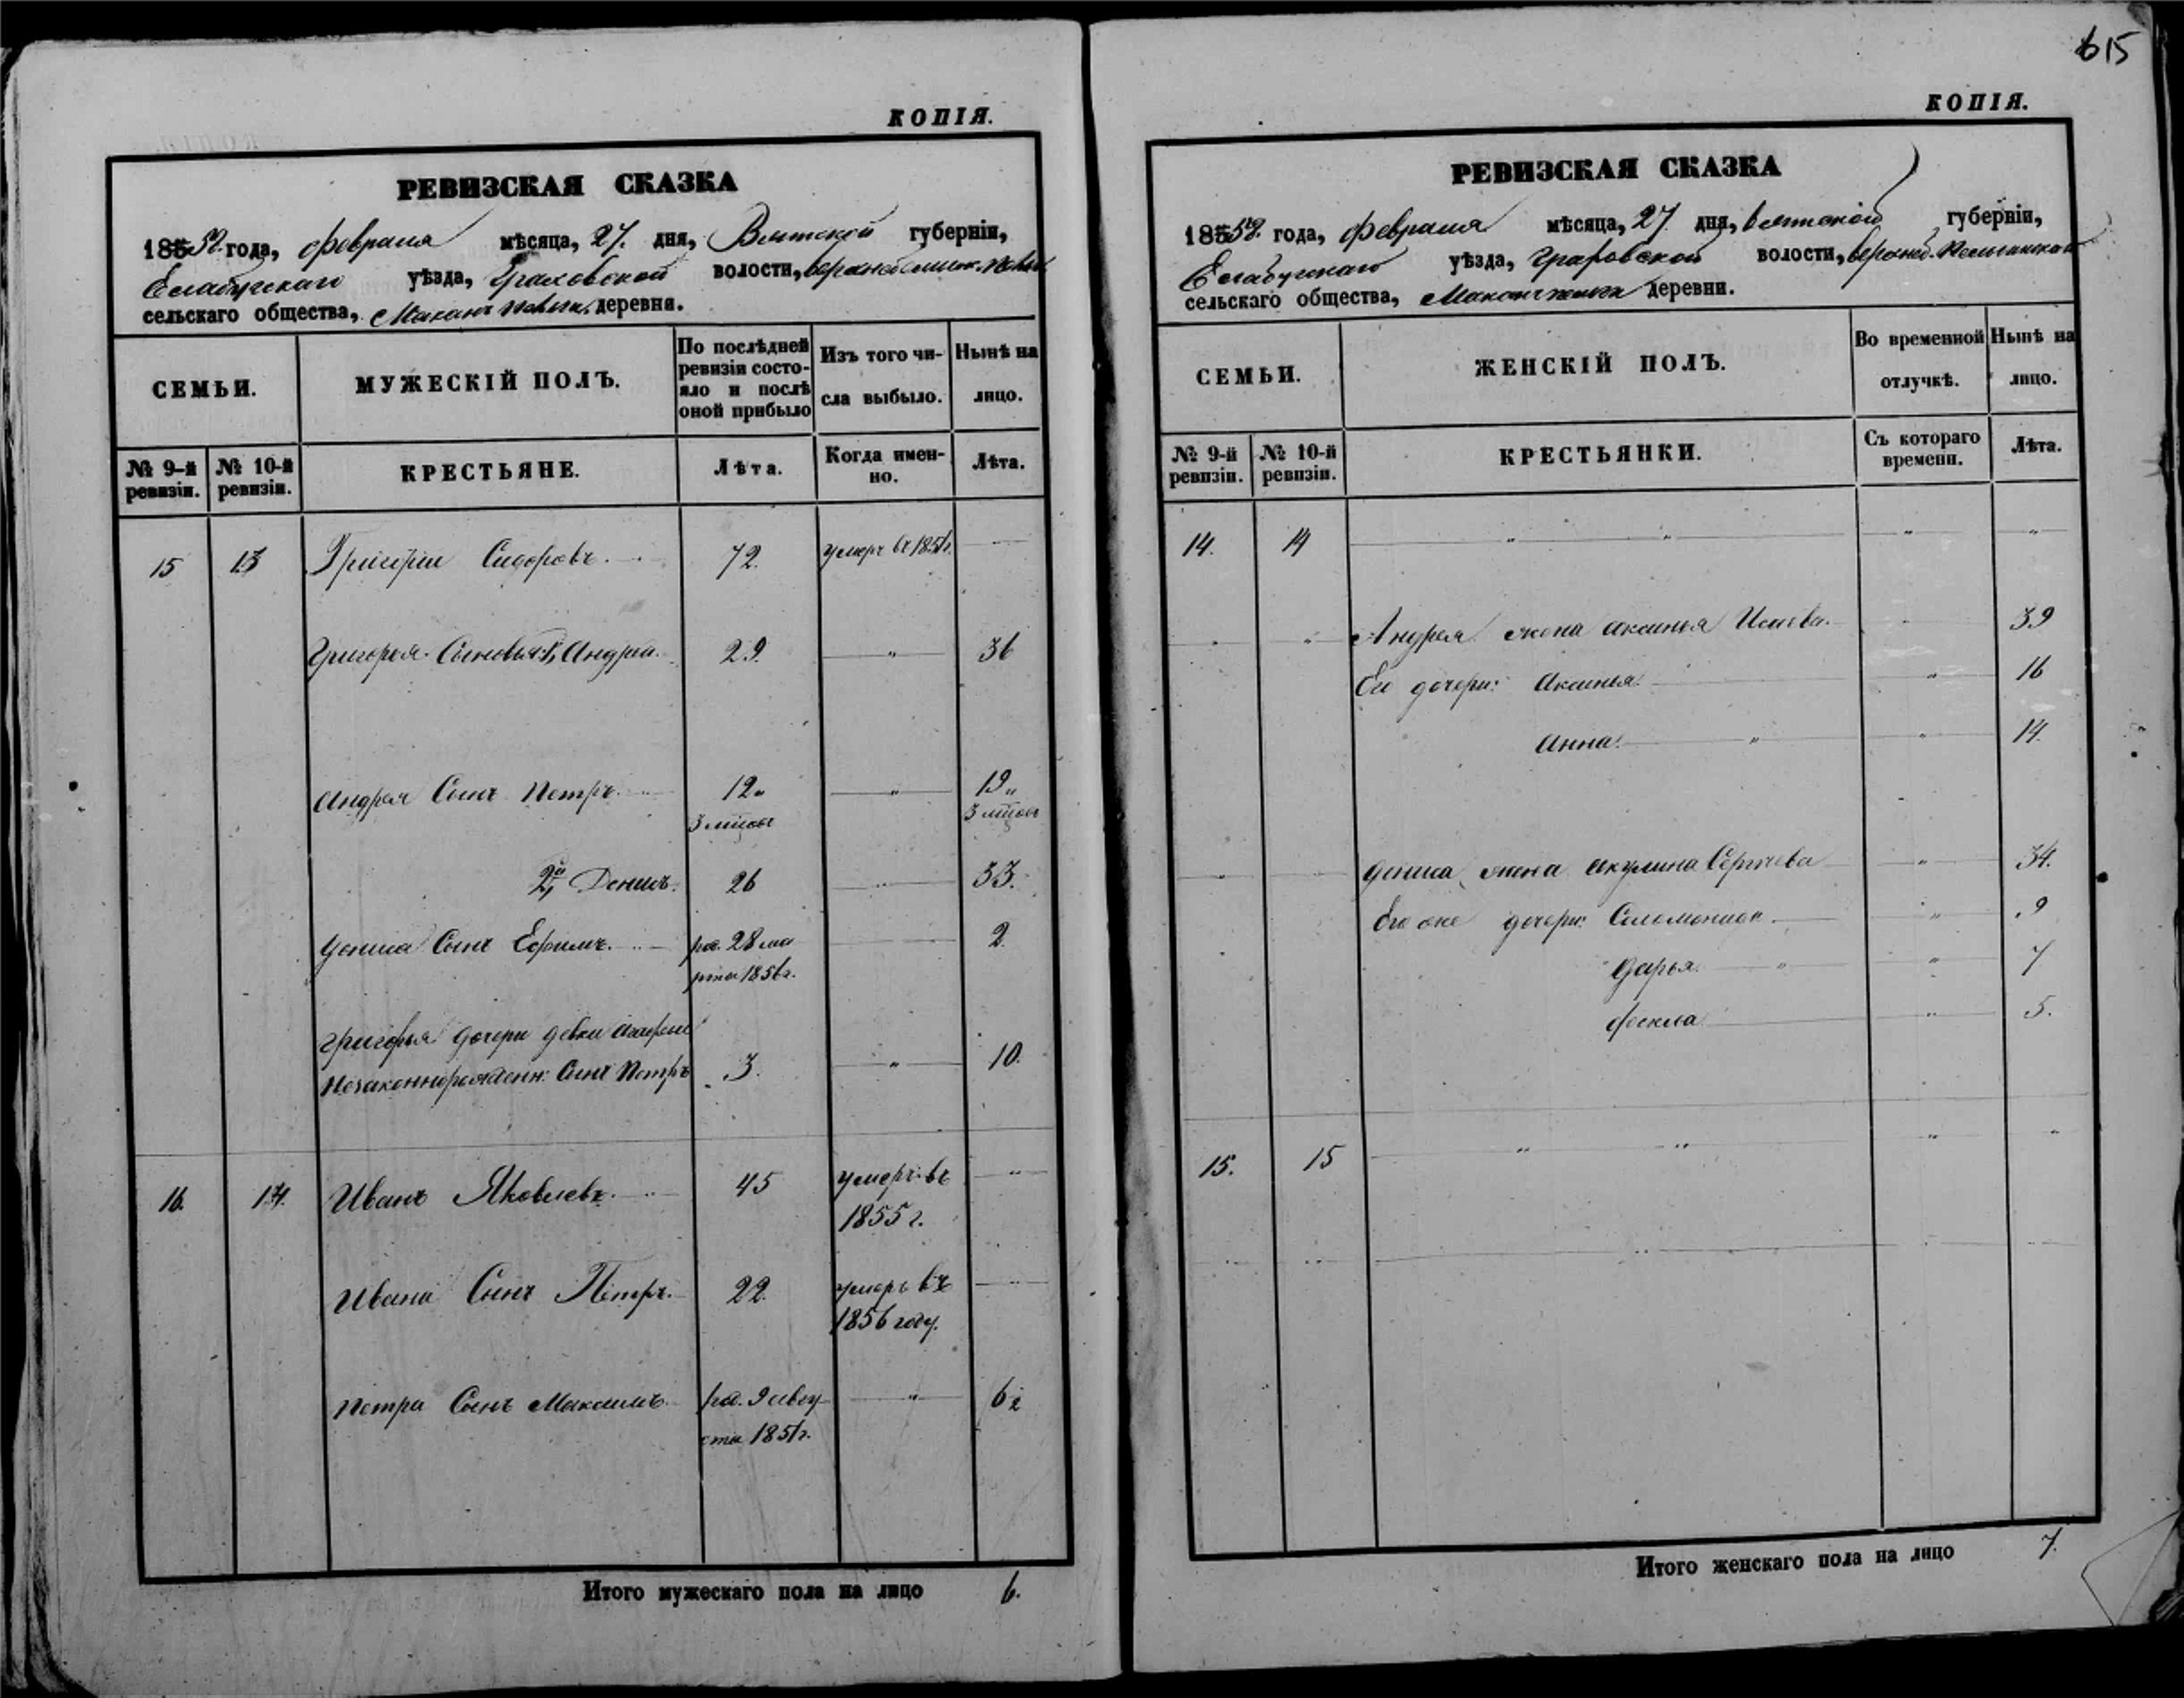 615
КОПІЯ.
РЕВИЗСКАЯ СКАЗКА
18558 года, февраля мѣсяца, 27. дня, Вятской губерніи,
Елабугскаго уѣзда, Граховской волости,
сельскаго общества, Маканъ пельги деревни.
СЕМЬИ.
МУЖЕСКІЙ ПОЛЪ.
По послѣдней ревизіи состояло и послѣ оной прибыло
Изъ того числа выбыло.
Нынѣ на лицо.
№ 9-й ревизіи.
№ 10-й ревизіи.
КРЕСТЬЯНЕ.
Лѣта.
Когда именно.
Лѣта.
15 13 Григорій Сидоровъ. 72. умеръ въ 1851г.
Григорья Сыновья 1, Андрей. 29. " 36
Андрея Сынъ Петръ. 12 " 19
3 мѣсяц 3 мѣсяц
2й Денисъ. 26 " 33.
Дениса Сынъ Ефимъ. ро. 28 ма 2
рта 1856г.
Григорья дочери девки
Незаконнорожденн: Сынъ Петръ 3. " 10.
16. 14. Иванъ Яковлевъ. 45 умеръ въ "
1855 г.
Ивана Сынъ Петръ. 22. умеръ въ "
1856 году.
Петра Сынъ Максимъ ро. 9 авгу " 6½
ста 1851г.
Итого мужескаго пола на лицо 6.
КОПІЯ.
РЕВИЗСКАЯ СКАЗКА
18558. года, февраля мѣсяца, 27 дня, Вятской губерніи,
Елабугскаго уѣзда, Граховской волости,
сельскаго общества, Маканъ пельги деревни.
СЕМЬИ.
ЖЕНСКІЙ ПОЛЪ.
Во временной отлучкѣ.
Нынѣ на лицо.
№ 9-й ревизіи.
№ 10-й ревизіи.
КРЕСТЬЯНКИ.
Съ котораго времени.
Лѣта.
14. 14 " " " "
" " Андрея жена Аксинья 39
Его дочери: Аксинья. " 16
Анна. " " 14.
Дениса жена Акулина Сергѣева " 34.
Его же дочери: Соломонида. " 9
Дарья. " " 7
Фекла " 5.
15. 15 " " " "
Итого женскаго пола на лицо 7.